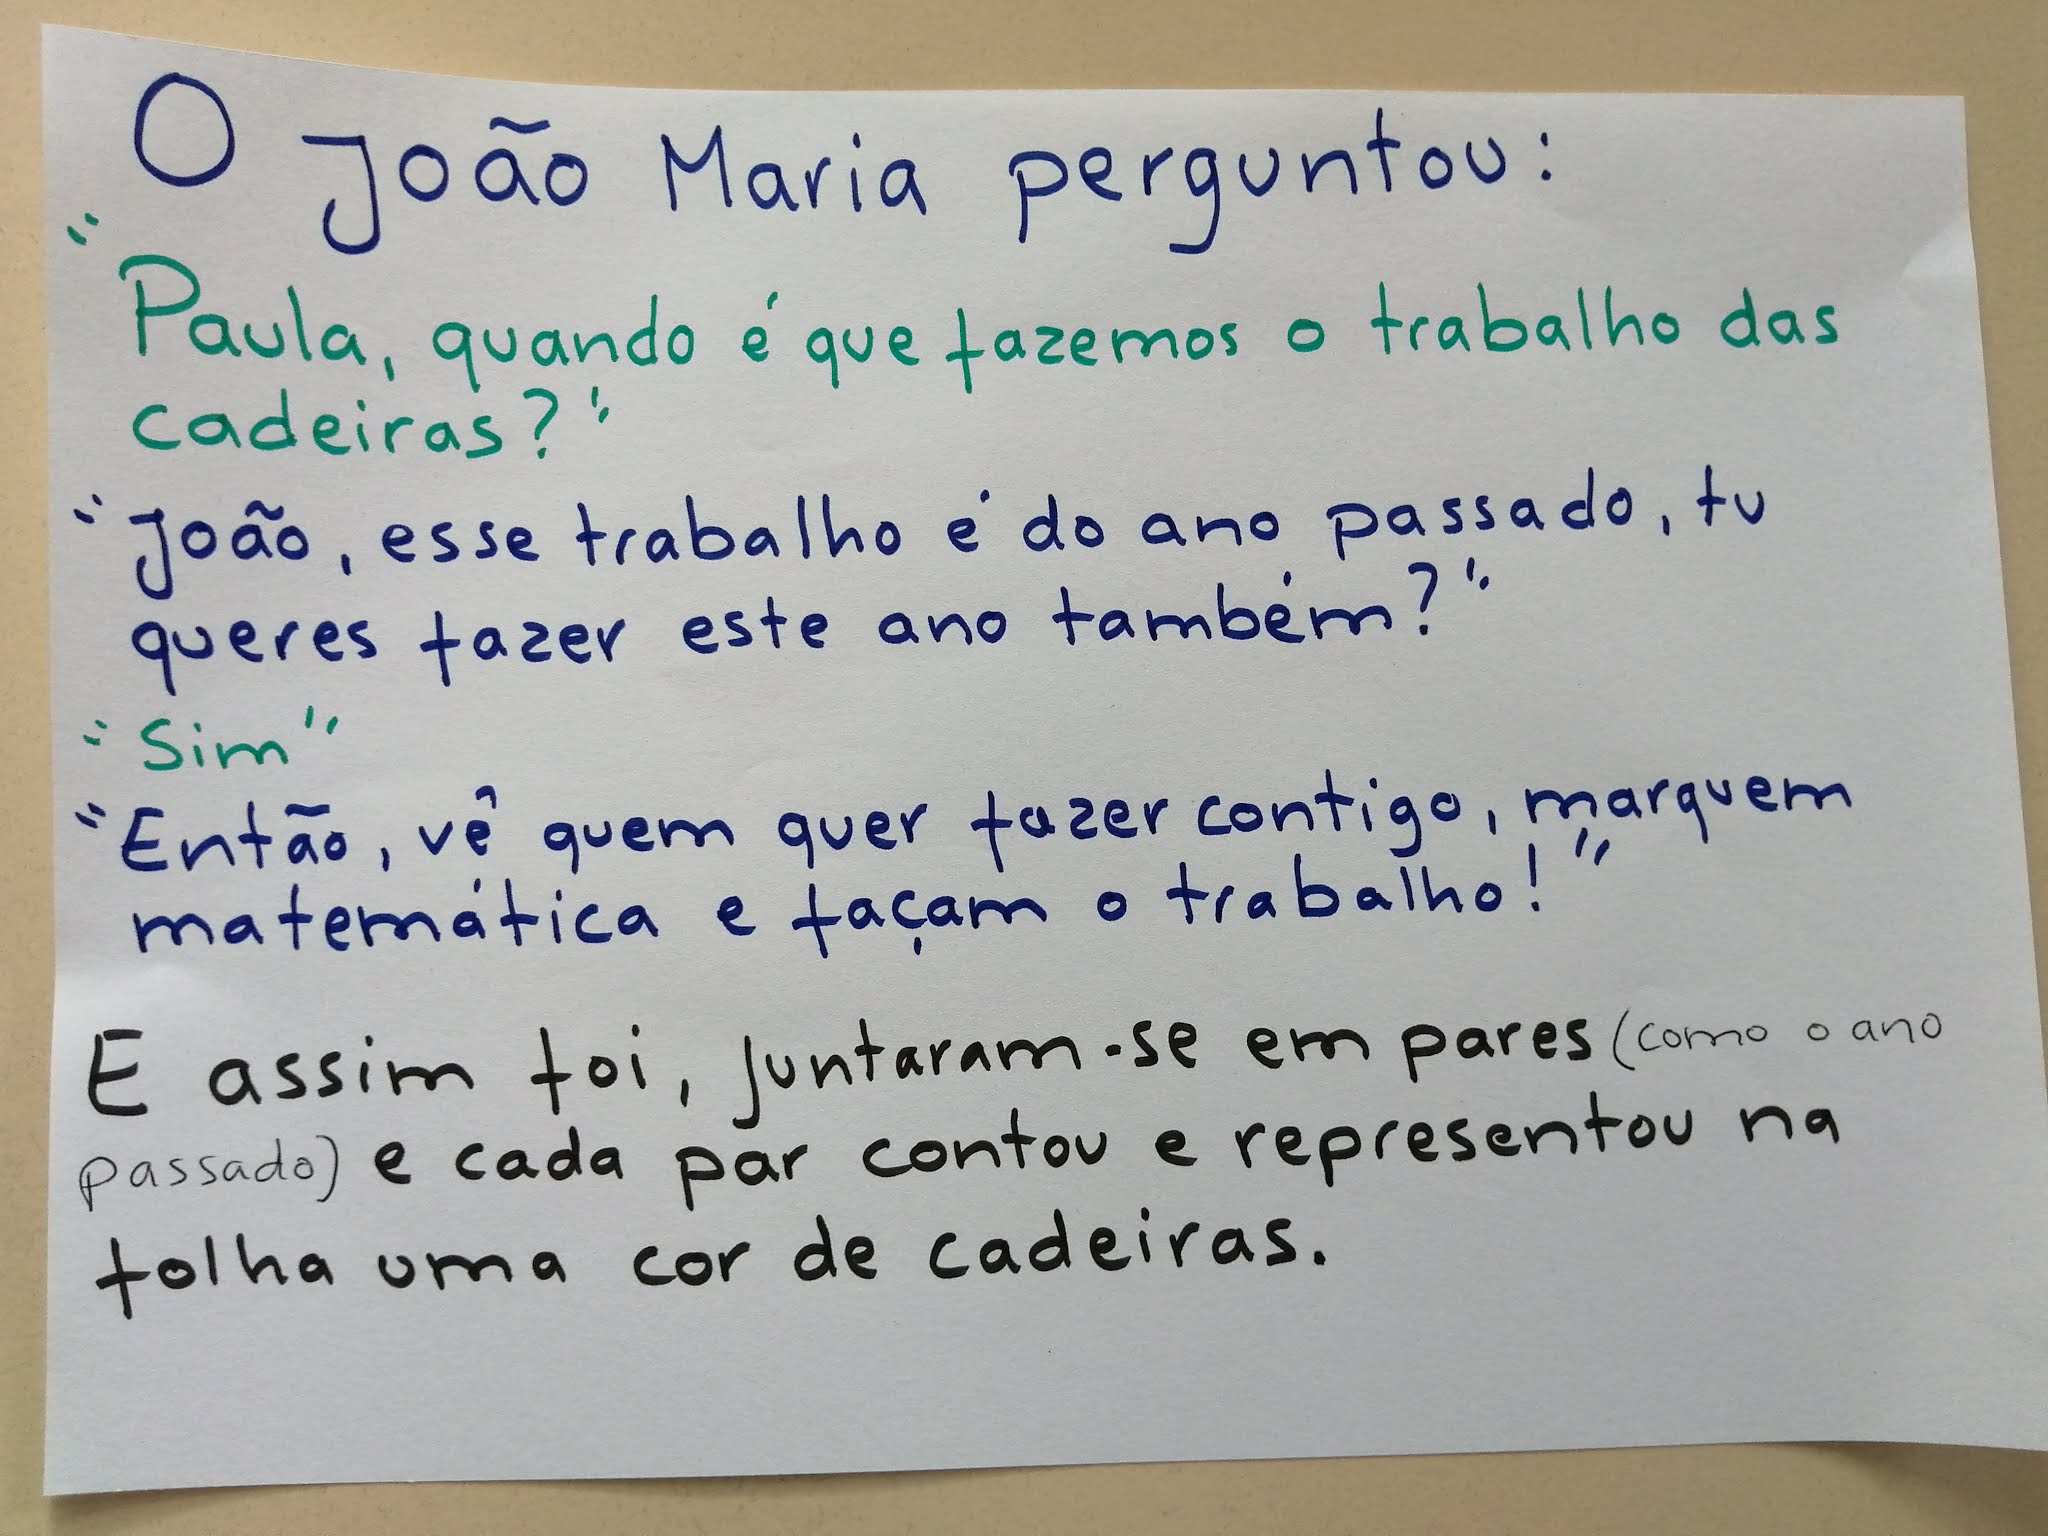 O João Maria perguntou:
"Paula, quando é que fazemos o trabalho das
cadeiras?"
"João, esse trabalho é do ano passado, tu
queres fazer este ano também?"
"Sim"
"Então, vê quem quer fazer contigo, marquem
matemática e façam o trabalho!"
E assim foi, juntaram-se em pares (como o ano
passado) e cada par contou e representou na
folha uma cor de cadeiras.